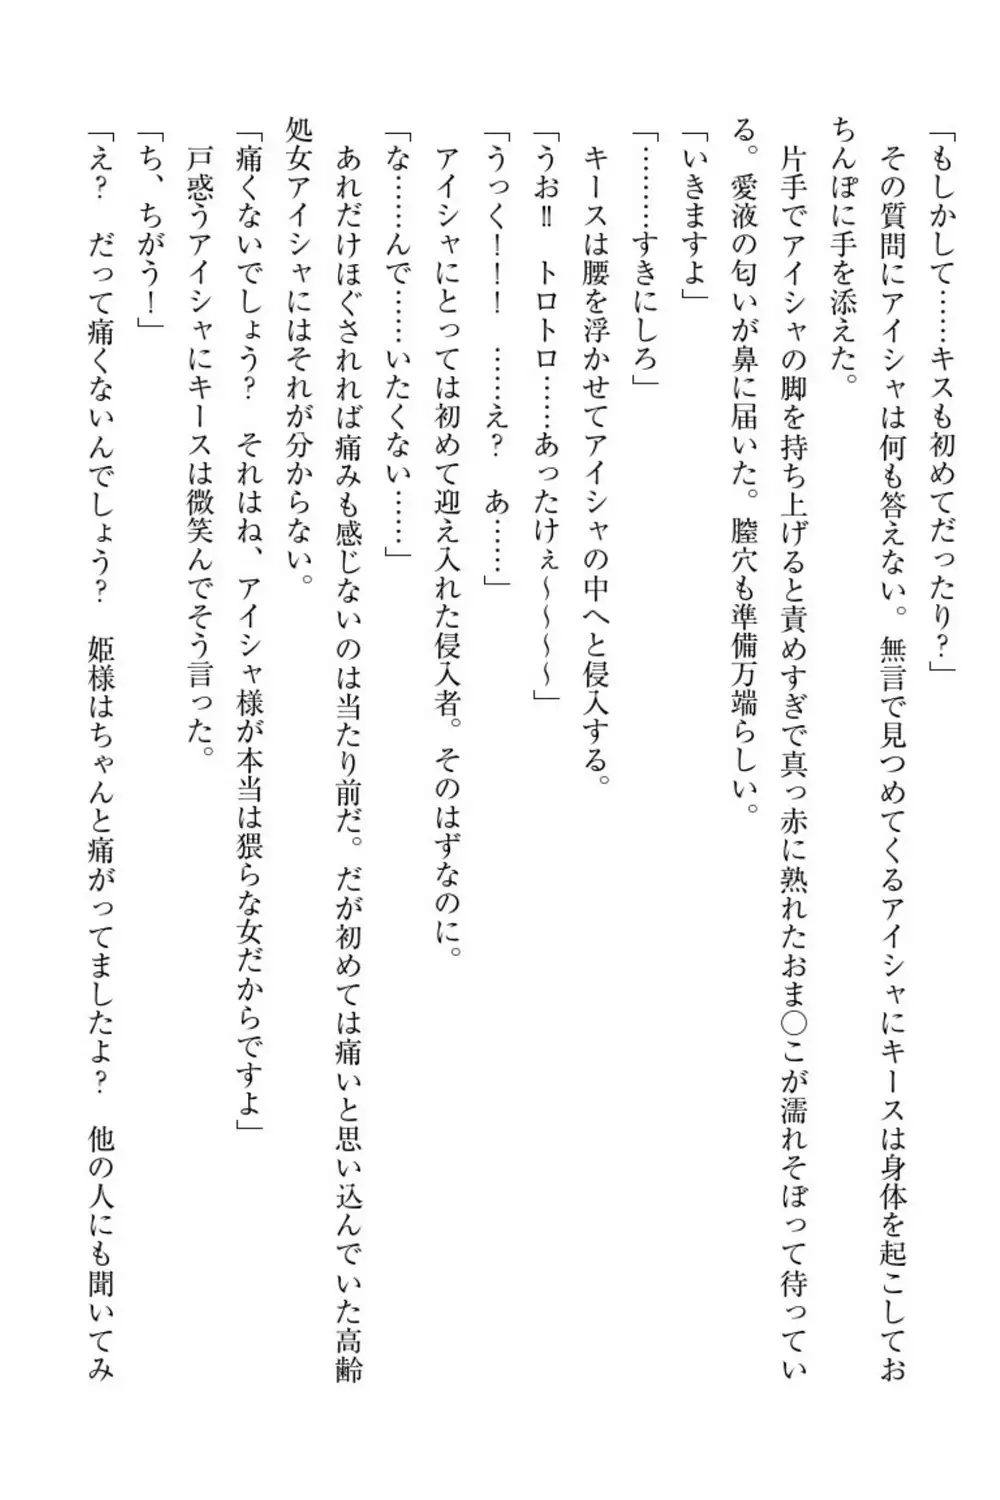 「もしかして……キスも初めてだったり？」
　その質問にアイシャは何も答えない。無言で見つめてくるアイシャにキースは身体を起こしてお
ちんぽに手を添えた。
　片手でアイシャの脚を持ち上げると責めすぎで真っ赤に熟れたおま◯こが濡れそぼって待ってい
る。愛液の匂いが鼻に届いた。膣穴も準備万端らしい。
「いきますよ」
「………すきにしろ」
　キースは腰を浮かせてアイシャの中へと侵入する。
「うお‼　トロトロ……あったけぇ～～～～」
「うっく！！！　……え？　あ……」
　アイシャにとっては初めて迎え入れた侵入者。そのはずなのに。
「な……んで……いたくない……」
　あれだけほぐされれば痛みも感じないのは当たり前だ。だが初めては痛いと思い込んでいた高齢
処女アイシャにはそれが分からない。
「痛くないでしょう？　それはね、アイシャ様が本当は猥らな女だからですよ」
　戸惑うアイシャにキースは微笑んでそう言った。
「ち、ちがう！」
「え？　だって痛くないんでしょう？　姫様はちゃんと痛がってましたよ？　他の人にも聞いてみ